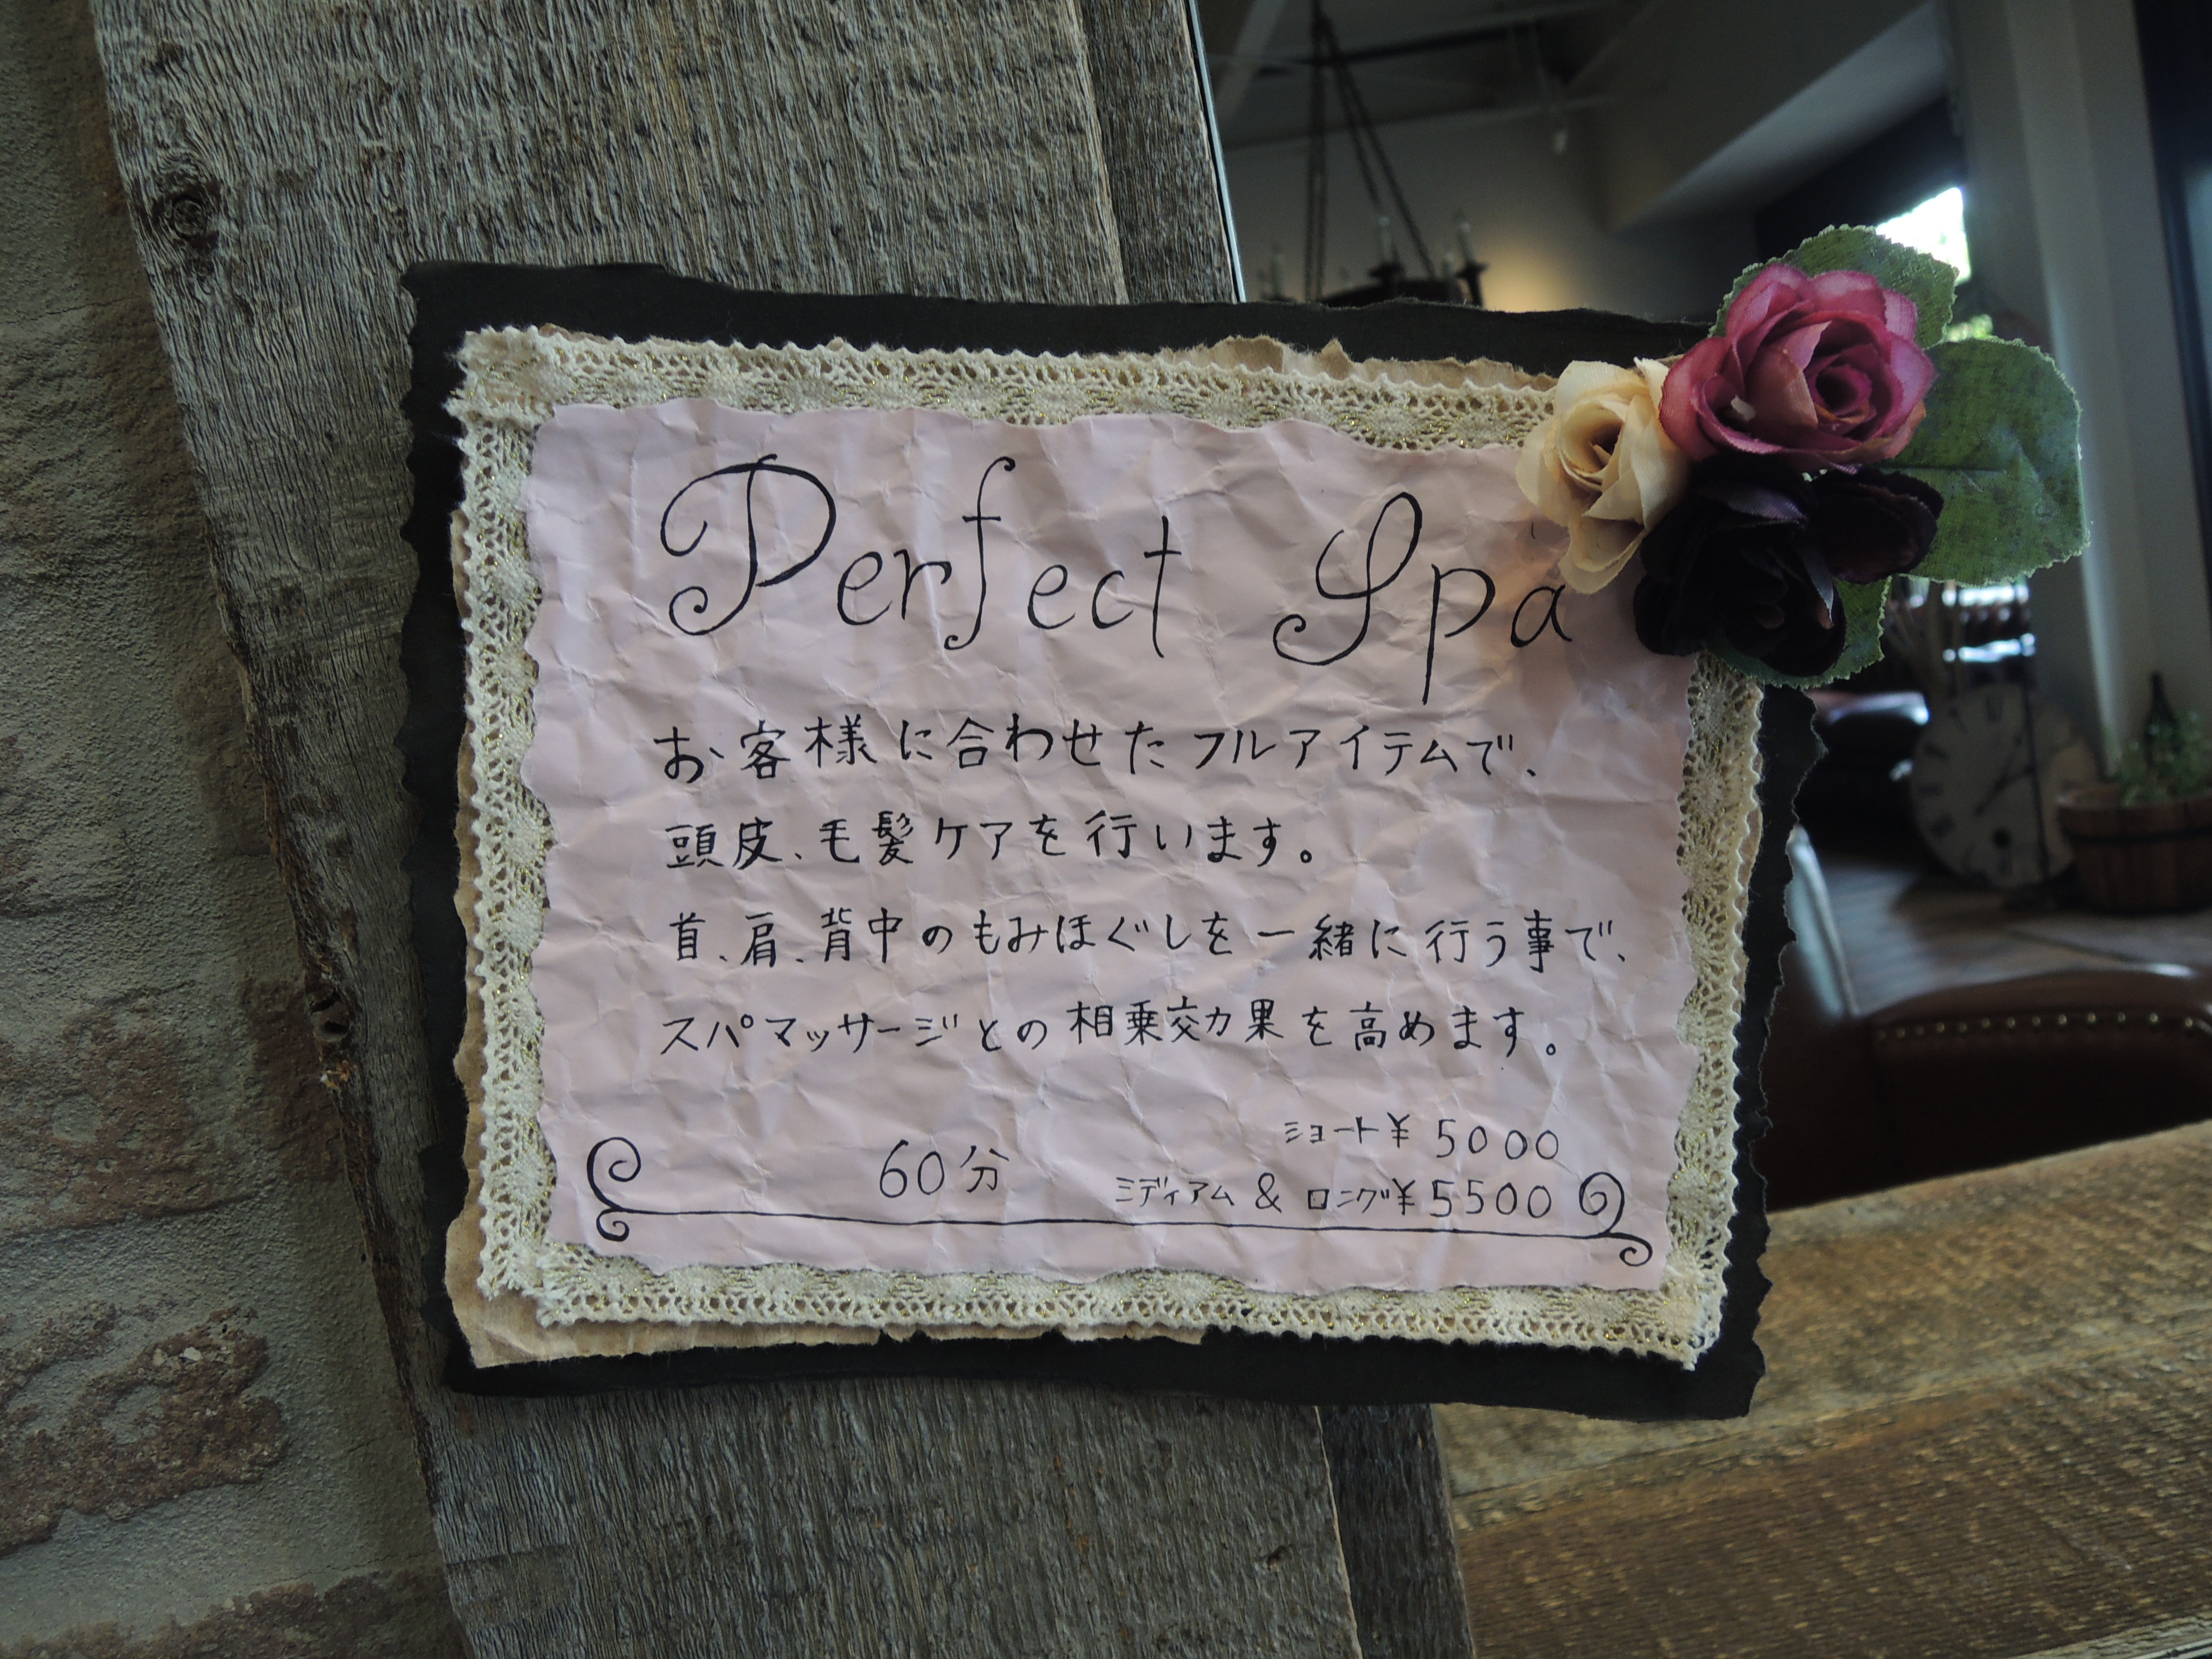 Perfect Spa
お客様に合わせたフルアイテムで、
頭皮、毛髪ケアを行います。
首、肩、背中のもみほぐしを一緒に行う事で、
スパマッサージとの相乗効果を高めます。
ショート¥5000
60分 ミディアム & ロング¥5500